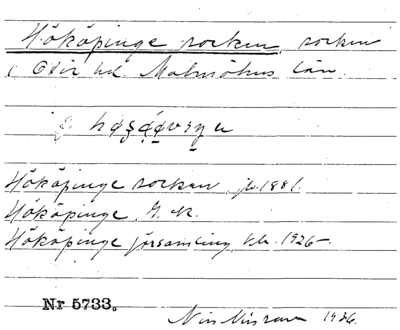 Hököpinge socken, socken
i Oxie hd. Malmöhus län.
Hököpinge socken, jb. 1881.
Hököpinge, G. K.
Hököpinge församling, kb. 1926-
Nr 5733.
1926.